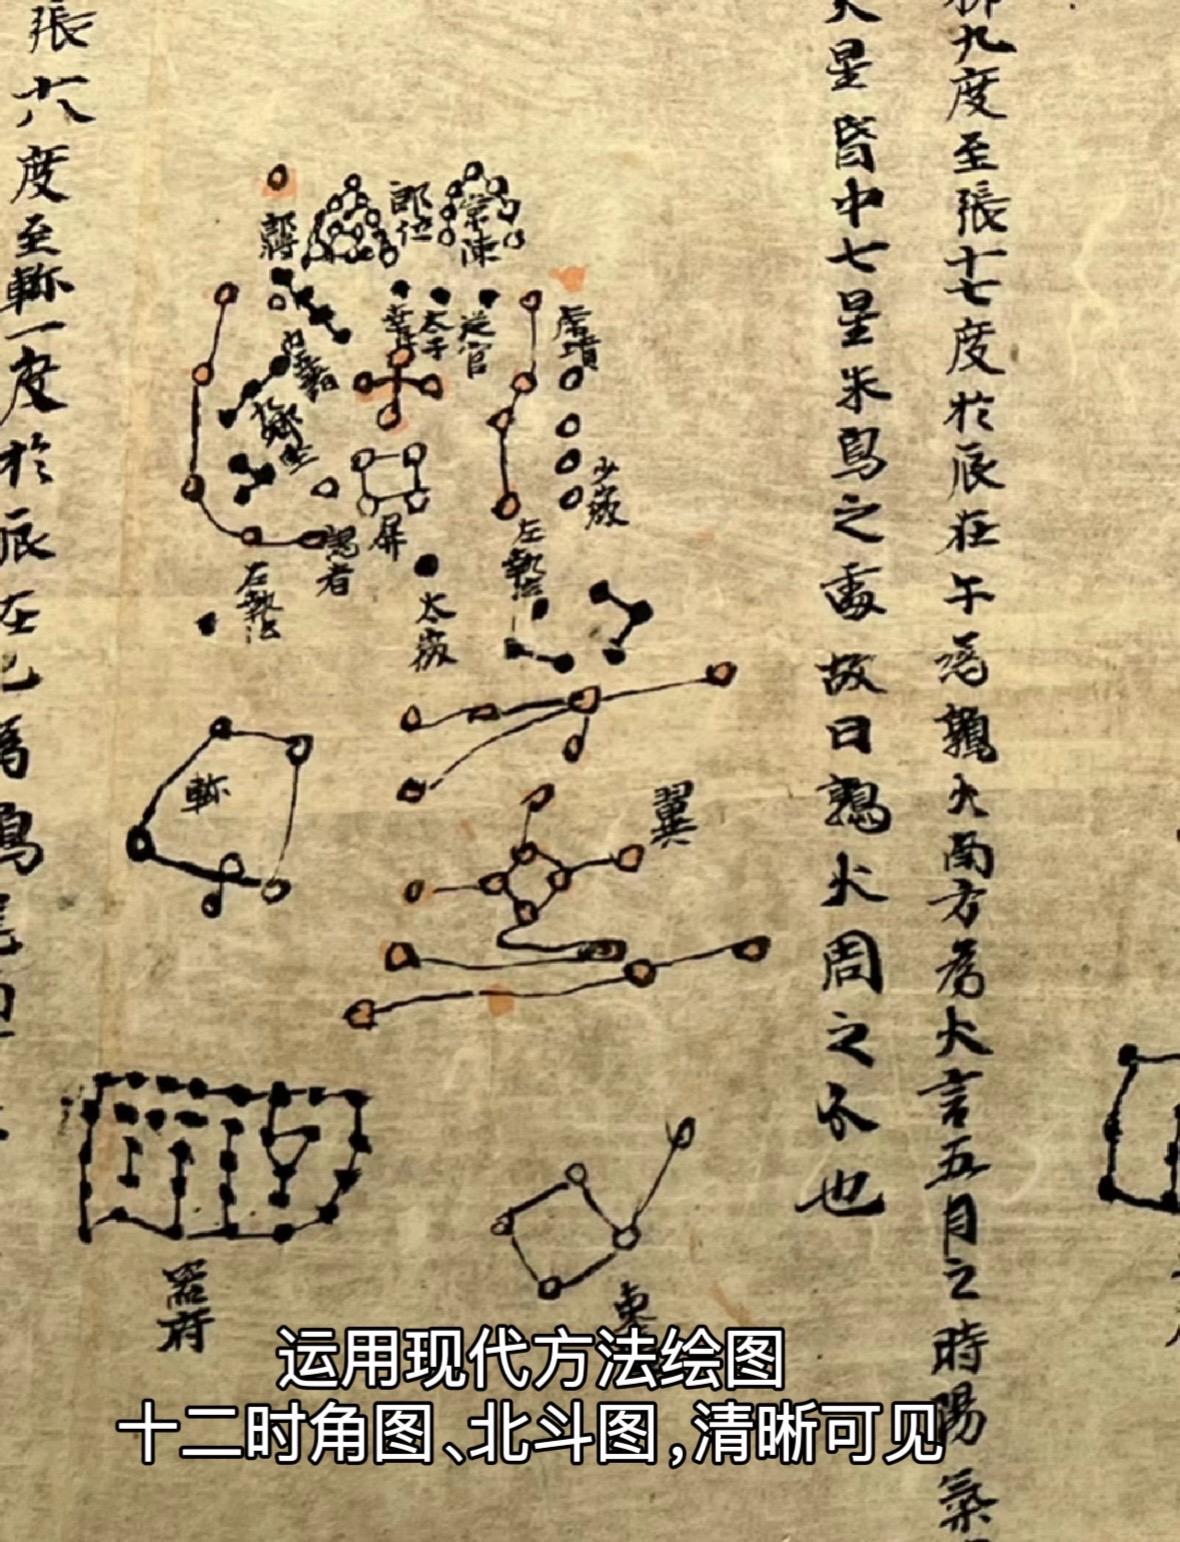 柳九度至張十七度於辰在午為鶉火南方為火言五月之時陽氣
火星昏中七星朱鳥之䖏故曰鶉火周之分也
張十八度至軫一度於辰在巳為鳥尾
郎將
郎位
常陳
幸臣
太子
從官
虎賁
少微
屏
謁者
右執法
左執法
太微
軫
翼
器府
東
运用现代方法绘图
十二时角图、北斗图,清晰可见